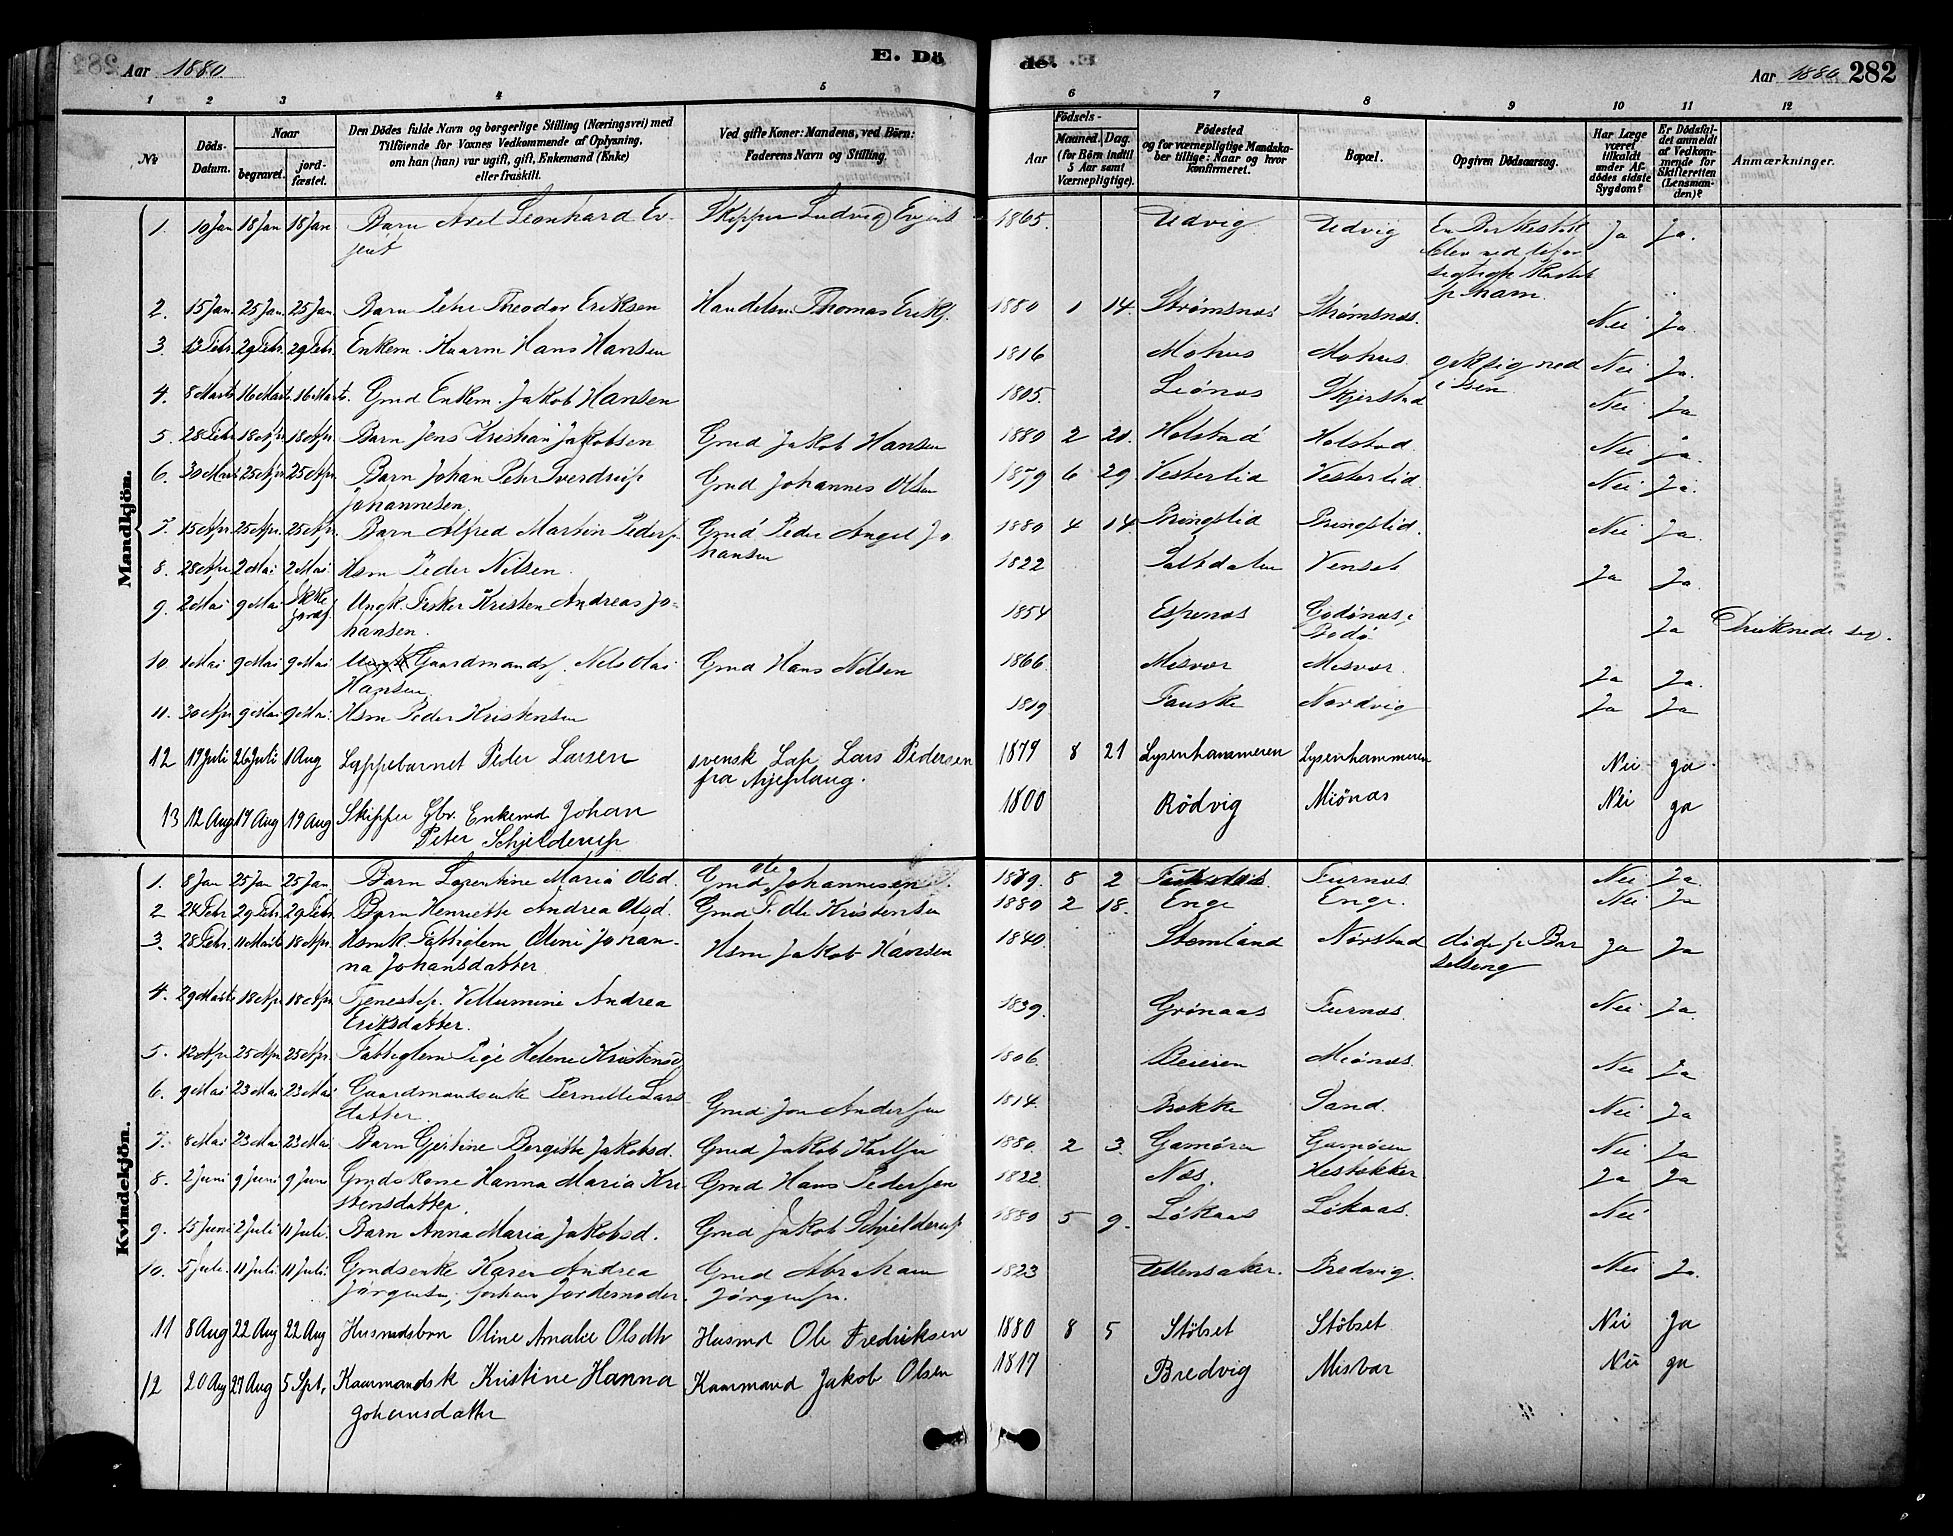 Aar 1880.
E. Dö
de.
Aar 1880 282
1 2 3 4 5 6 7 8 9 10 11 12
No
Döds-Datum.
Naar
begravet.
jordfæstet.
Den Dödes fulde Navn og borgerlige Stilling (Næringsvei) med
Tilföiende for Voxnes Vedkommende af Oplysning,
om han (hun) var ugift, gift, Enkemand (Enke)
eller fraskilt.
Ved gifte Koner: Mandens, ved Börn:
Faderens Navn og Stilling.
Födsels-
Aar
Maaned. Dag.
(for Börn indtil
5 Aar samt
Værnepligtige).
Födested
og for værnepligtige Mandska-
ber tillige: Naar og hvor
konfirmeret.
Bopæl.
Opgiven Dödsaarsag.
Har Læge
været
tilkaldt
under Af-
dödes sidste
Sygdom?
Er Dödsfal-
det anmeldt
af Vedkom-
mende for
Skifteretten
(Lensman-
den)?
Anmærkninger.
Mandkjön.
1. 10 Jan 18 Jan 18 Jan Barn Axel Leonhard Ev- Skipper Ludvig 1865. Udvig Udvig Ja Ja.
jent
2. 15 Jan. 25 Jan. 25 Jan. Barn Peter Theodor Eriksen Handelsm. Thomas Eriks. 1880 1 14. Strømsnæs Strømsnæs. Nei Ja.
3. 13 Febr. 29 Febr. 29 Febr. Enkem. Kaarm Hans Hansen 1816 Mohus Mohus. gik sig ned Nei Ja.
i isen
4. 8 Marts 16 Marts. 16 Marts. Gmd Enkem. Jakob Hansen 1805. Liønæs Skjerstad Nei Ja
5. 28 Febr 18 Apr. 18 Apr. Barn Jens Kristian Jakobsen Gmd Jakob Hansen 1880 2 21. Holstad Holstad. Nei ja.
6. 30 Marts 25 Apr 25 Apr. Barn Johan Peter Sverdrup Gmd Johannes Olsen 1879 6 29. Vesterlid Vesterlid. Nei Ja.
Johannesen.
7. 15 Apr. 25 Apr. 25 Apr. Barn Alfred Martin Peders. Gmd Peder Angel Jo- 1880 4 14. Bringslid Bringslid. Nei Ja.
hansen
8. 28 Apr. 2 Mai 2 Mai Hsm Peder Nilsen. 1822 Saltdalen Venset Ja Ja.
9. 2 Mai 9 Mai Ikke jordf. Ungk. Fisker Kristen Andreas Jo- 1854 Espenæs Godønæs i Ja Druknede
hansen. Bodø.
10. 1 Mai 9 Mai 9 Mai Gaardmands. Nils Olai Gmd Hans Nilsen 1866. Misvær Misvær. Ja Ja.
Hansen
11. 30 Apr 9 Mai 9 Mai. Hsm Peder Kristensen 1819 Fauske Nordvig Ja Ja
12 17 Juli 26 Juli 1 Aug Lappebarnet Peder Larsen svensk Lap Lars Pedersen 1879 8 21 Lysenhammeren Lysenhammeren Nei ja
fra Arjeplaug.
13 12 Aug 19 Aug 19 Aug Skipper Gbr. Enkemd Johan 1800 Rödvig Miönæs Nei ja
Peter Schjelderup
Kvindekjön.
1. 8 Jan 25 Jan 25 Jan. Barn Lorentine Maria Olsd. Gmd Ole Johannesen. 1879. 8 2 Furnæs. Nei Ja.
2 24 Febr. 29 Febr. 29 Febr. Barn Henriette Andrea Olsd. Gmd Kristensen 1880 2 18. Enge Enge. Nei Ja
3. 28 Febr. 11 Marts 18 Apr. Hsmk. Fattiglem Oline Johan- Hsm Jakob Hansen 1840. Stemland Nørstad døde p. Bar Ja Ja
na Johansdatter selseng
4. 29 Marts 18 Apr. 18 Apr. Tjenestep. Vellumine Andrea 1839. Grønaas Furnæs. Nei Ja.
Eriksdatter.
5. 12 Apr. 25 Apr. 25 Apr. Fattiglem Pige Helene Kristensd 1806. Beieren Miønæs. Nei Ja
6. 9 Mai 23 Mai 23 Mai Gaardmandsenke Pernille Lars Gmd Jon Andersen 1814. Brekke Sand. Nei Ja
datter.
7. 8 Mai 23 Mai 23 Mai Barn Gjertine Bergitte Jakobsd. Gmd Jakob Karlsen 1880. 2 3. Gamøren Gamøren Nei Ja
8. 2 Juni 9 Juni 9 Juni Gmdskone Hanna Maria Kri- Gmd Hans Pedersen 1822. Næs. Hestokker Ja Ja
stensdatter.
9. 15 Juni 2 Juli 11 Juli. Barn Anna Maria Jakobsd. Gmd Jakob Schjelderup 1880 5 9. Løkaas Løkaas. Nei
10. 5 Juli. 11 Juli. 11 Juli. Gmdsenke Karen Andrea Gmd Abraham 1823 Ullensaker. Bredvig. Nei Ja.
Jørgensen, Jordemoder. Jørgensen.
11 8 Aug 22 Aug 22 Aug Husmdsbrn Oline Amalie Olsdtr Husmd Ole Fredriksen 1880 8 5 Stölset Stölset Nei Ja
12 20 Aug 27 Aug 5 Spt. Kaarmandsk Kristine Hanna Kaarmand Jakob Olsen 1817 Bredvig Misvær Nei ja
Johansdatter